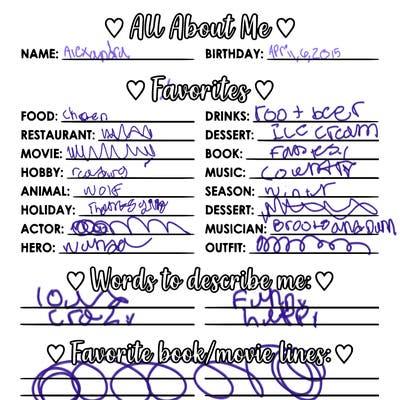 All About Me
NAME: Alexandra BIRTHDAY: April, 6, 2015
Favorites
FOOD: DRINKS: root beer
RESTAURANT: DESSERT: Ice cream
MOVIE: BOOK:
HOBBY: MUSIC: country
ANIMAL: wolf SEASON: winter
HOLIDAY: Thanksgiving DESSERT:
ACTOR: MUSICIAN:
HERO: OUTFIT:
Words to describe me:
Funny
crazy happy
Favorite book/movie lines: